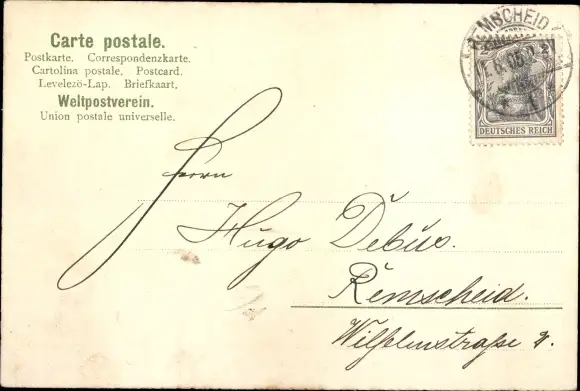 Carte postale.
Postkarte. Correspondenzkarte.
Cartolina postale. Postcard.
Levelezö-Lap. Briefkaart.
Weltpostverein.
Union postale universelle.
REMSCHEID
DEUTSCHES REICH
Herrn
Hugo Debus.
Remscheid.
Wilhelmstraße